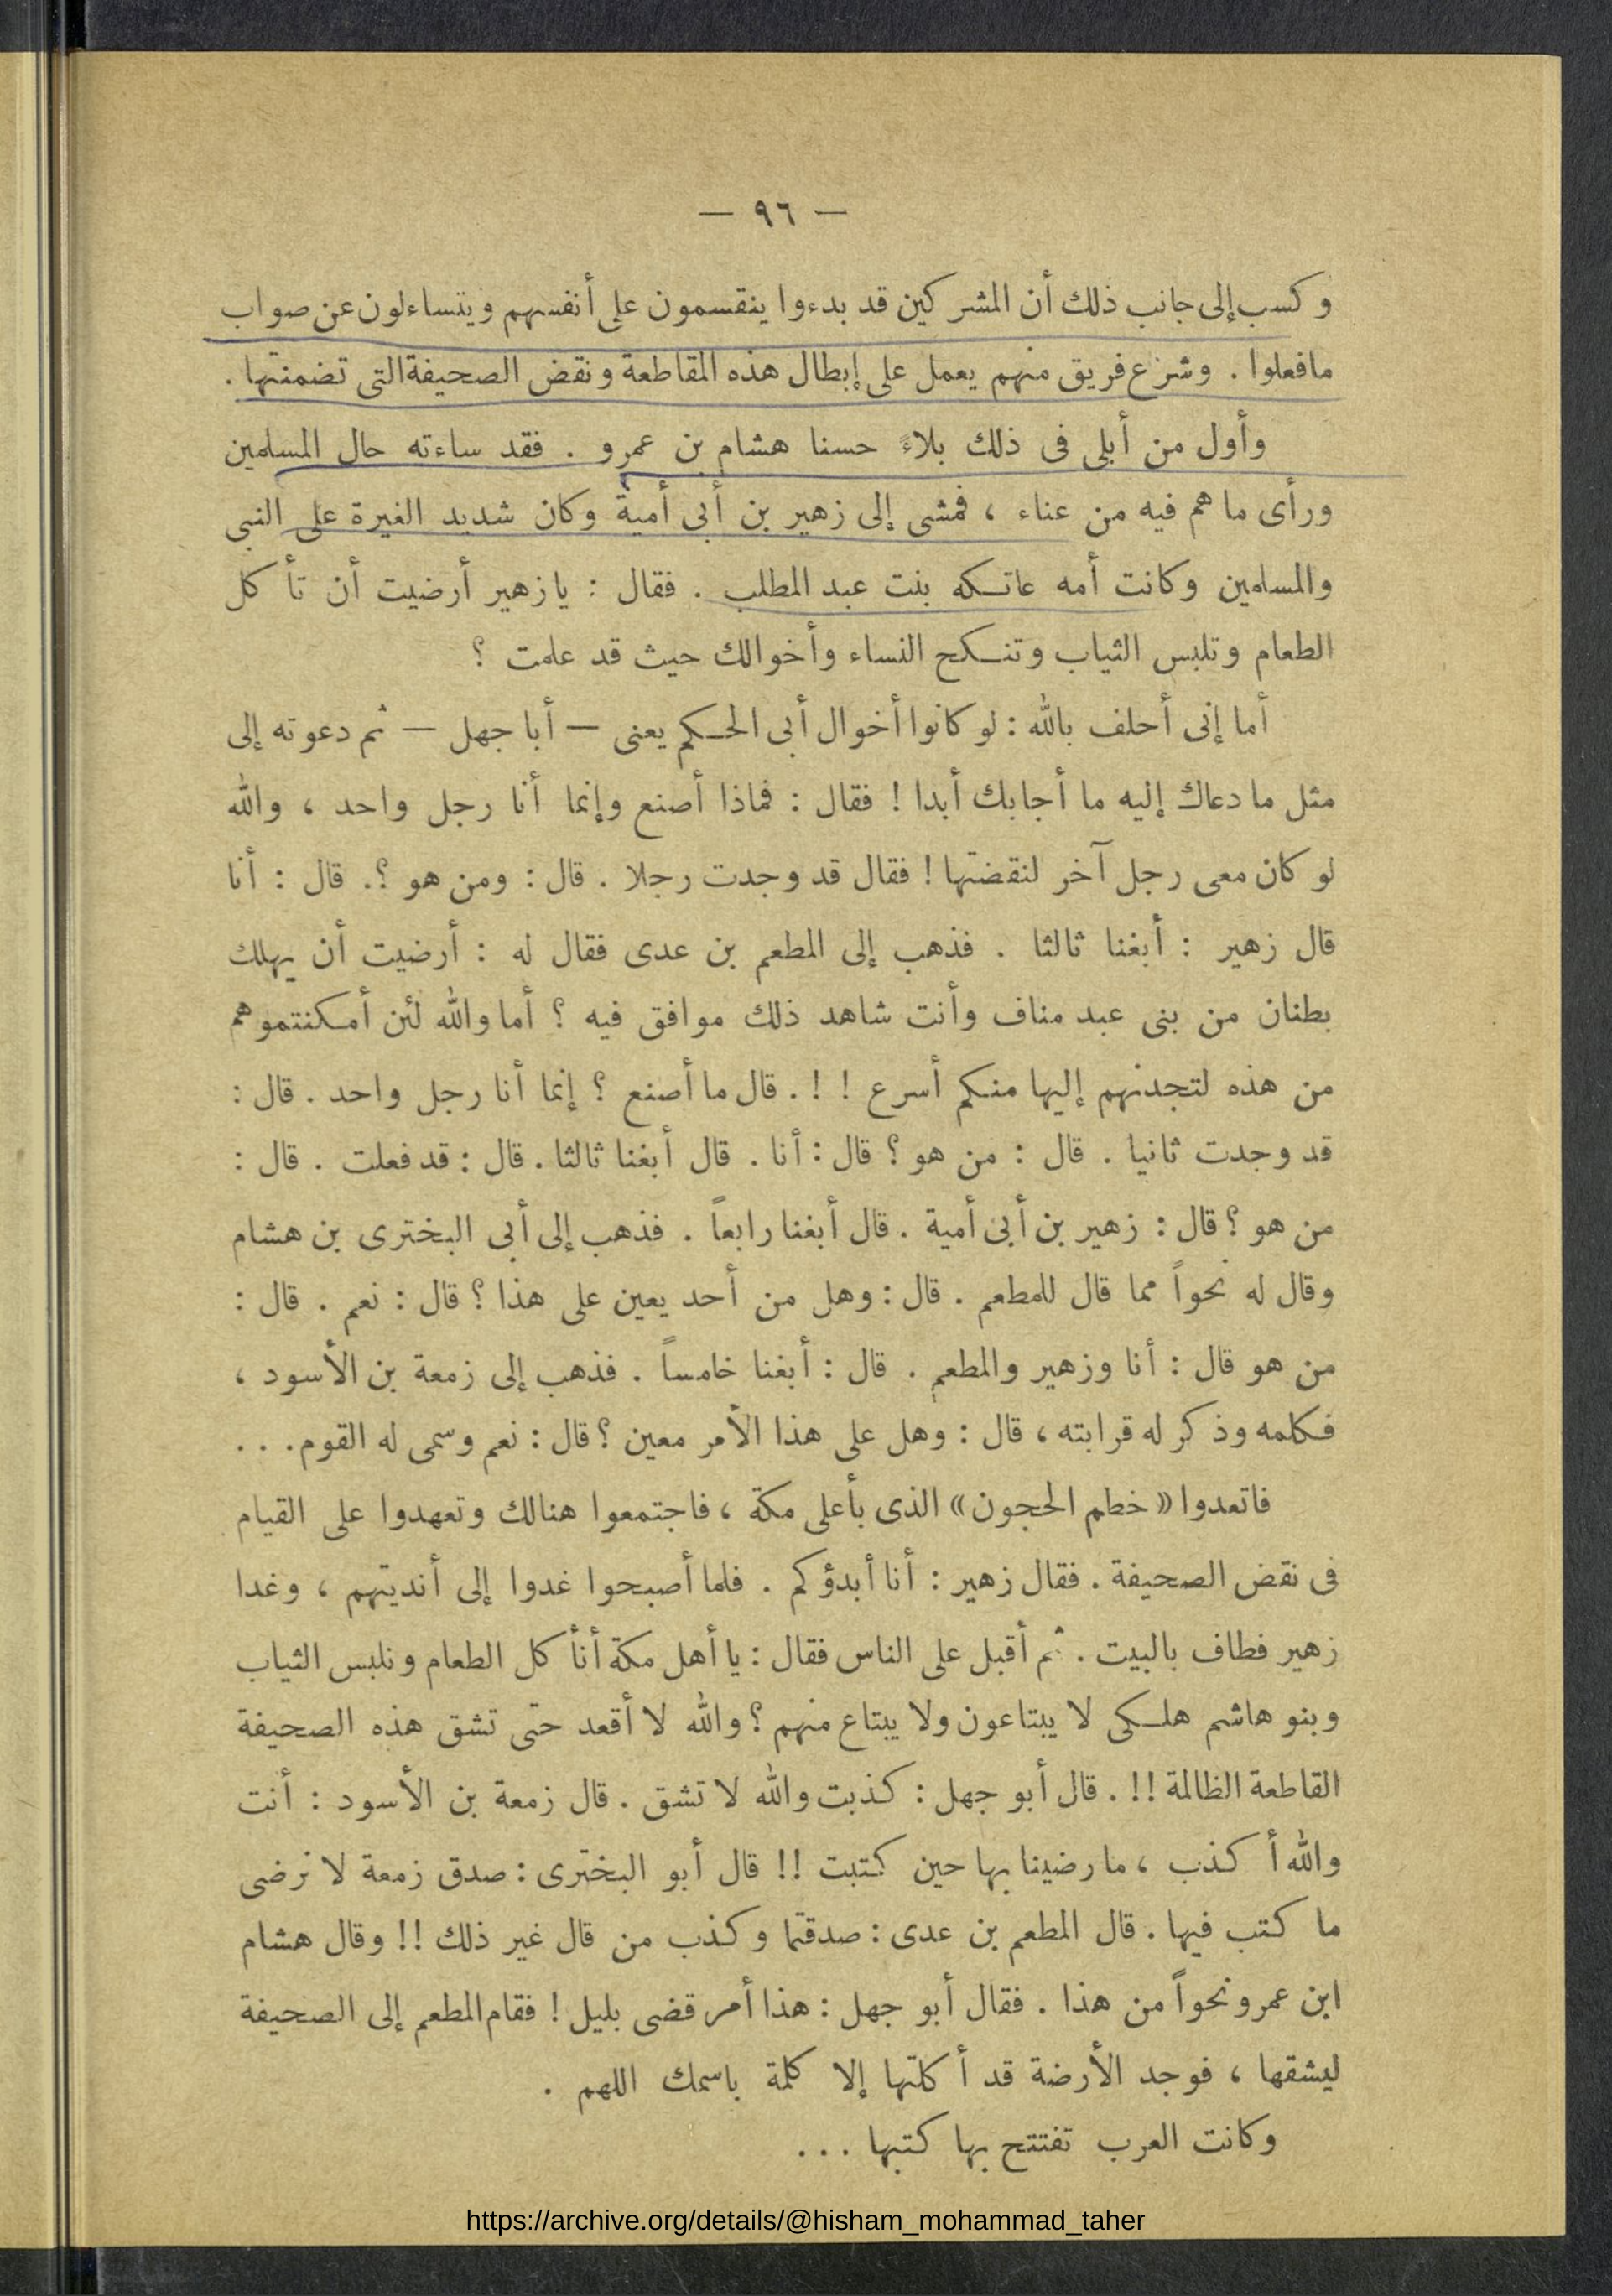 — ٩٦ —
وكسب إلى جانب ذلك أن المشركين قد بدءوا ينقسمون على أنفسهم ويتساءلون عن صواب
مافعلوا . وشرع فريق منهم يعمل على إبطال هذه المقاطعة ونقض الصحيفة التى تضمنتها .
وأول من أبلى فى ذلك بلاءً حسنا هشام بن عمرو . فقد ساءته حال المسلمين
ورأى ما هم فيه من عناء ، فمشى إلى زهير بن أبى أمية وكان شديد الغيرة على النبى
والمسلمين وكانت أمه عاتكه بنت عبد المطلب . فقال : يا زهير أرضيت أن تأكل
الطعام وتلبس الثياب وتنكح النساء وأخوالك حيث قد علمت ؟
أما إنى أحلف بالله : لو كانوا أخوال أبى الحكم يعنى — أبا جهل — ثم دعوته إلى
مثل ما دعاك إليه ما أجابك أبدا ! فقال : فماذا أصنع وإنما أنا رجل واحد ، والله
لو كان معى رجل آخر لنقضتها ! فقال قد وجدت رجلا . قال : ومن هو ؟. قال : أنا
قال زهير : أبغنا ثالثا . فذهب إلى المطعم بن عدى فقال له : أرضيت أن يهلك
بطنان من بنى عبد مناف وأنت شاهد ذلك موافق فيه ؟ أما والله لئن أمكنتموهم
من هذه لتجدنهم إليها منكم أسرع ! ! . قال ما أصنع ؟ إنما أنا رجل واحد . قال :
قد وجدت ثانيا . قال : من هو ؟ قال : أنا . قال أبغنا ثالثا . قال : قد فعلت . قال :
من هو ؟ قال : زهير بن أبى أمية . قال أبغنا رابعاً . فذهب إلى أبى البخترى بن هشام
وقال له نحواً مما قال للمطعم . قال : وهل من أحد يعين على هذا ؟ قال : نعم . قال :
من هو قال : أنا وزهير والمطعم . قال : أبغنا خامساً . فذهب إلى زمعة بن الأسود ،
فكلمه وذكر له قرابته ، قال : وهل على هذا الأمر معين ؟ قال : نعم وسمى له القوم . . .
فاتعدوا « خطم الحجون » الذى بأعلى مكة ، فاجتمعوا هنالك وتعهدوا على القيام
فى نقض الصحيفة . فقال زهير : أنا أبدؤكم . فلما أصبحوا غدوا إلى أنديتهم ، وغدا
زهير فطاف بالبيت . ثم أقبل على الناس فقال : يا أهل مكة أنأكل الطعام ونلبس الثياب
وبنو هاشم هلكى لا يبتاعون ولا يبتاع منهم ؟ والله لا أقعد حتى تشق هذه الصحيفة
القاطعة الظالمة !! . قال أبو جهل : كذبت والله لا تشق . قال زمعة بن الأسود : أنت
والله أكذب ، ما رضينا بها حين كتبت !! قال أبو البخترى : صدق زمعة لا نرضى
ما كتب فيها . قال المطعم بن عدى : صدقتما وكذب من قال غير ذلك !! وقال هشام
ابن عمرو نحواً من هذا . فقال أبو جهل : هذا أمر قضى بليل ! فقام المطعم إلى الصحيفة
ليشقها ، فوجد الأرضة قد أكلتها إلا كلمة باسمك اللهم .
وكانت العرب تفتتح بها كتبها . . .
https://archive.org/details/@hisham_mohammad_taher